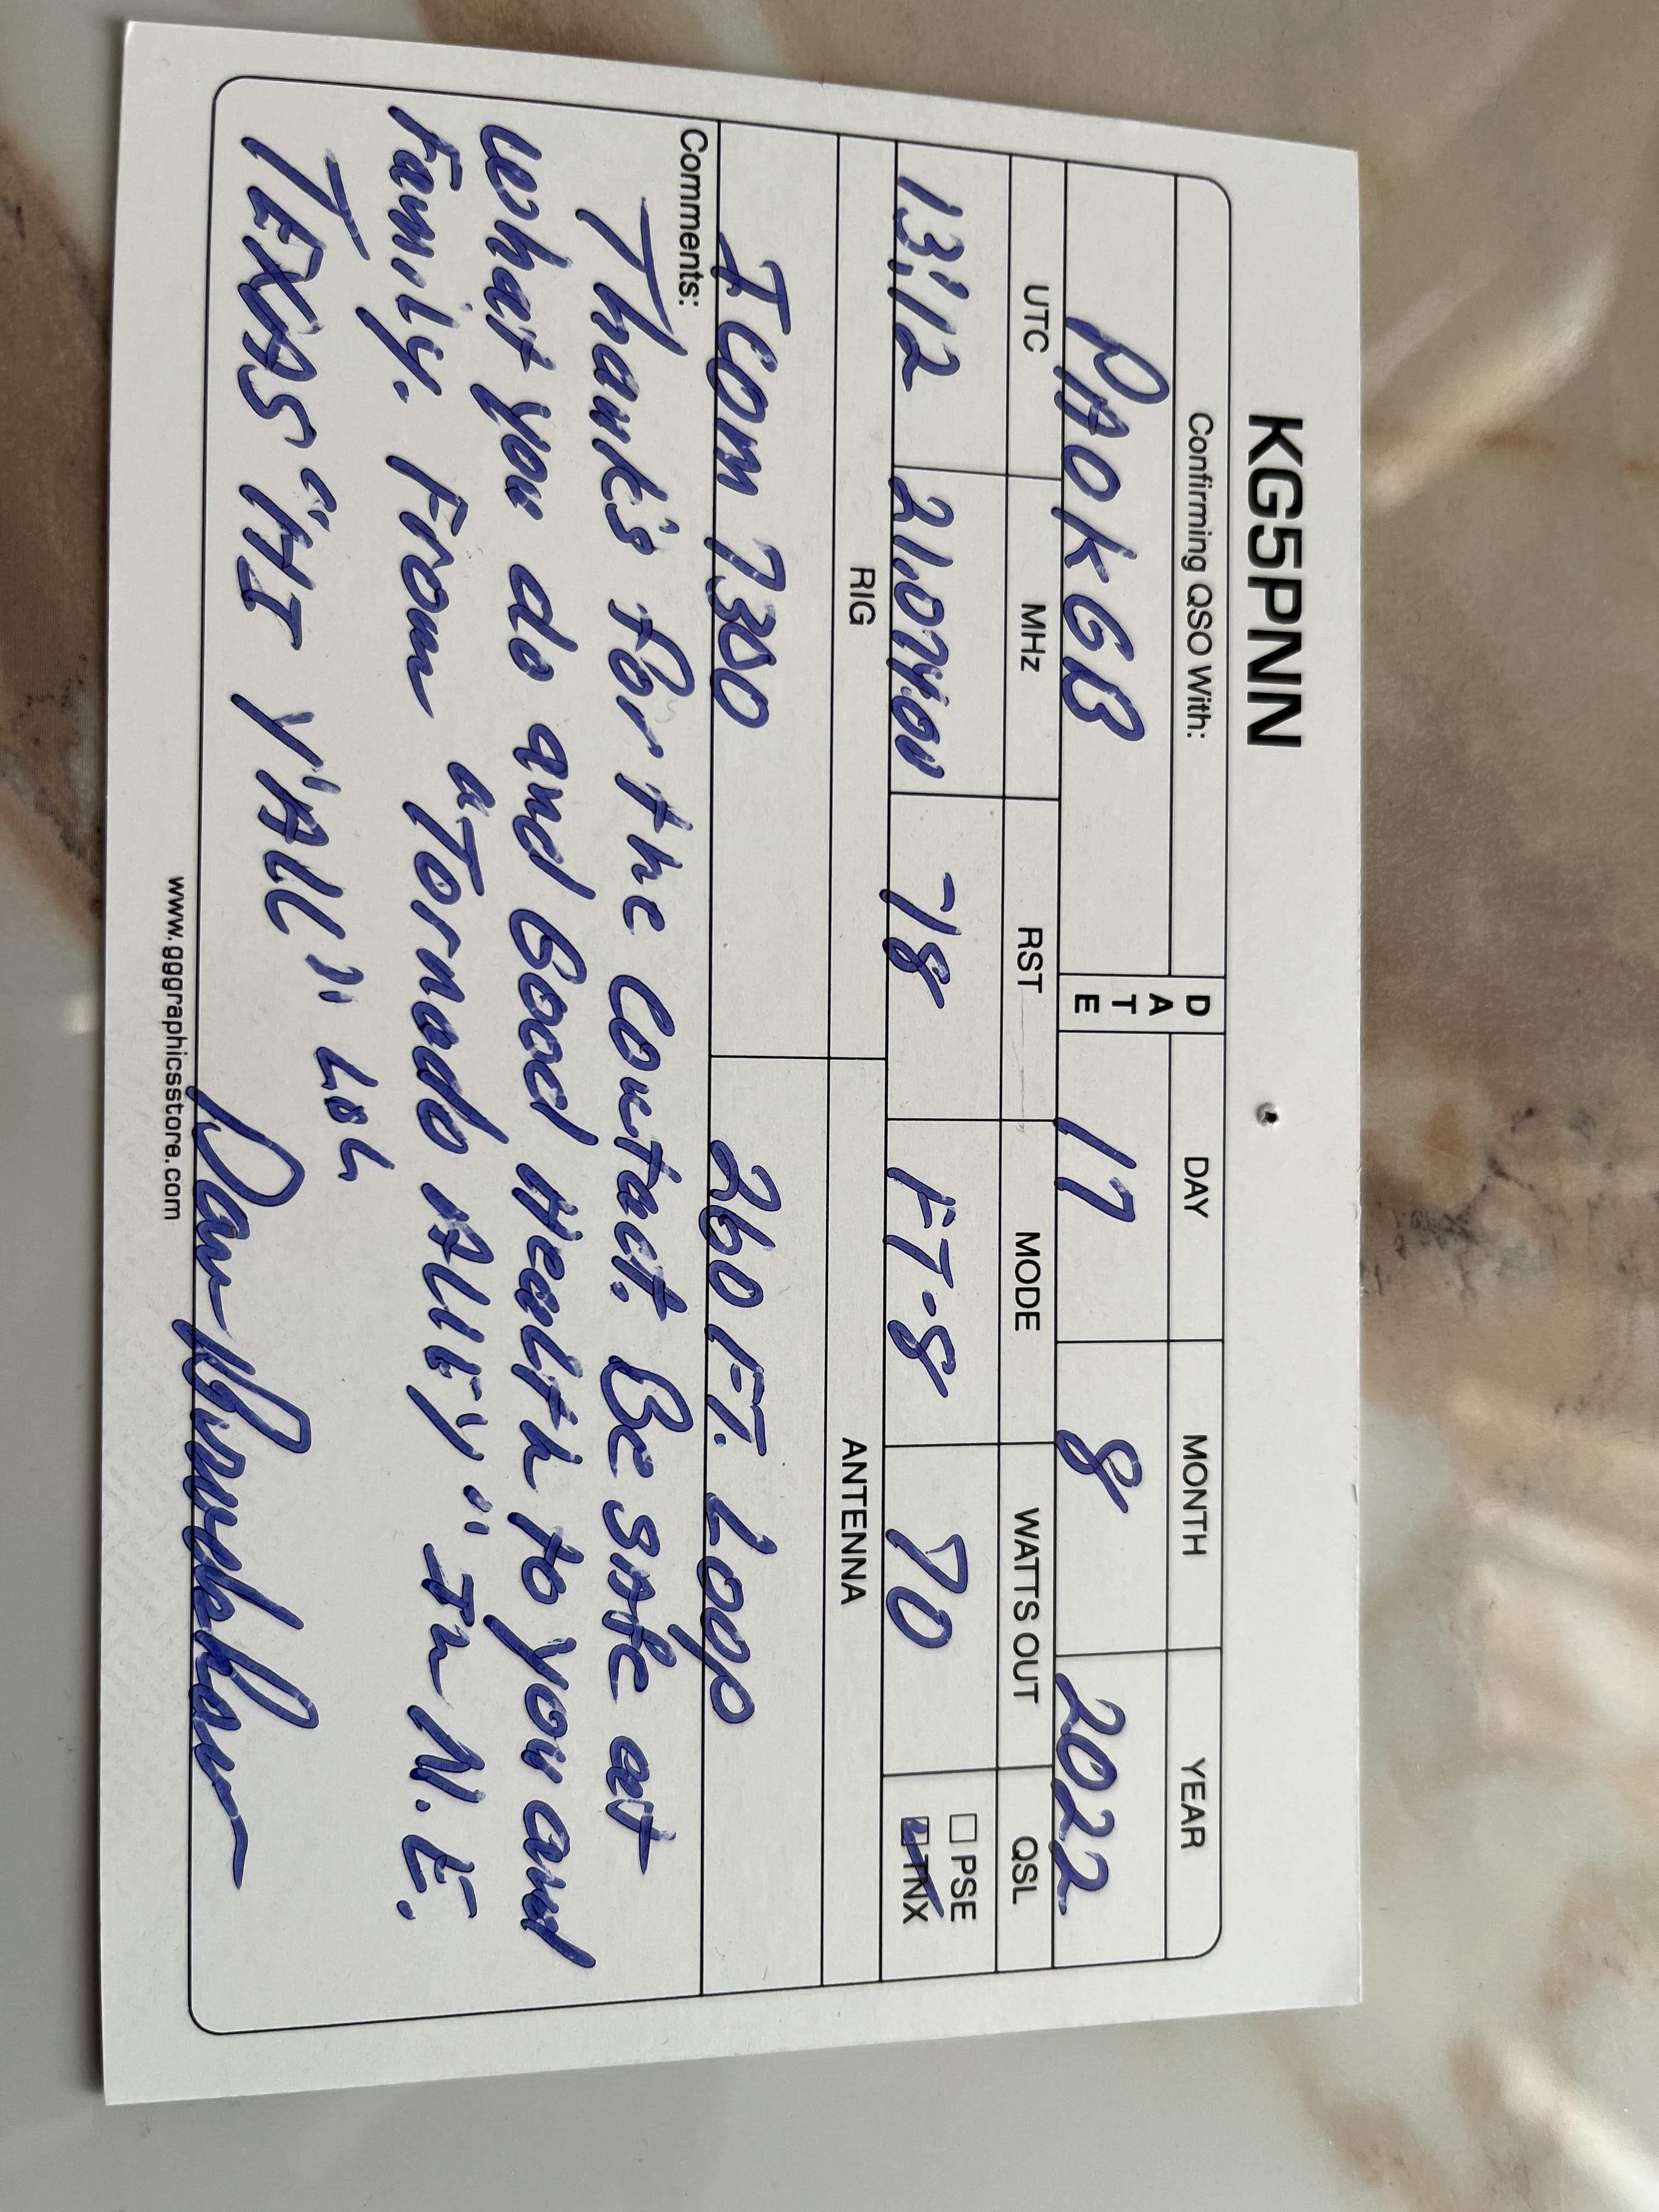 KG5PNN
Confirming QSO With:
DATE
DAY MONTH YEAR
PA0KGB 17 8 2022
UTC MHz RST MODE WATTS OUT QSL
13:12 21.074.00 -18 FT-8 70 PSE
TNX
RIG ANTENNA
ICOM 7300 260 FT. Loop
Comments:
Thank's for the Contact. Be safe at
what you do and Good Health to you and
Family. From "Tornado Alley" In N.E.
TEXAS "HI Y'ALL" LOL
www.gggraphicsstore.com